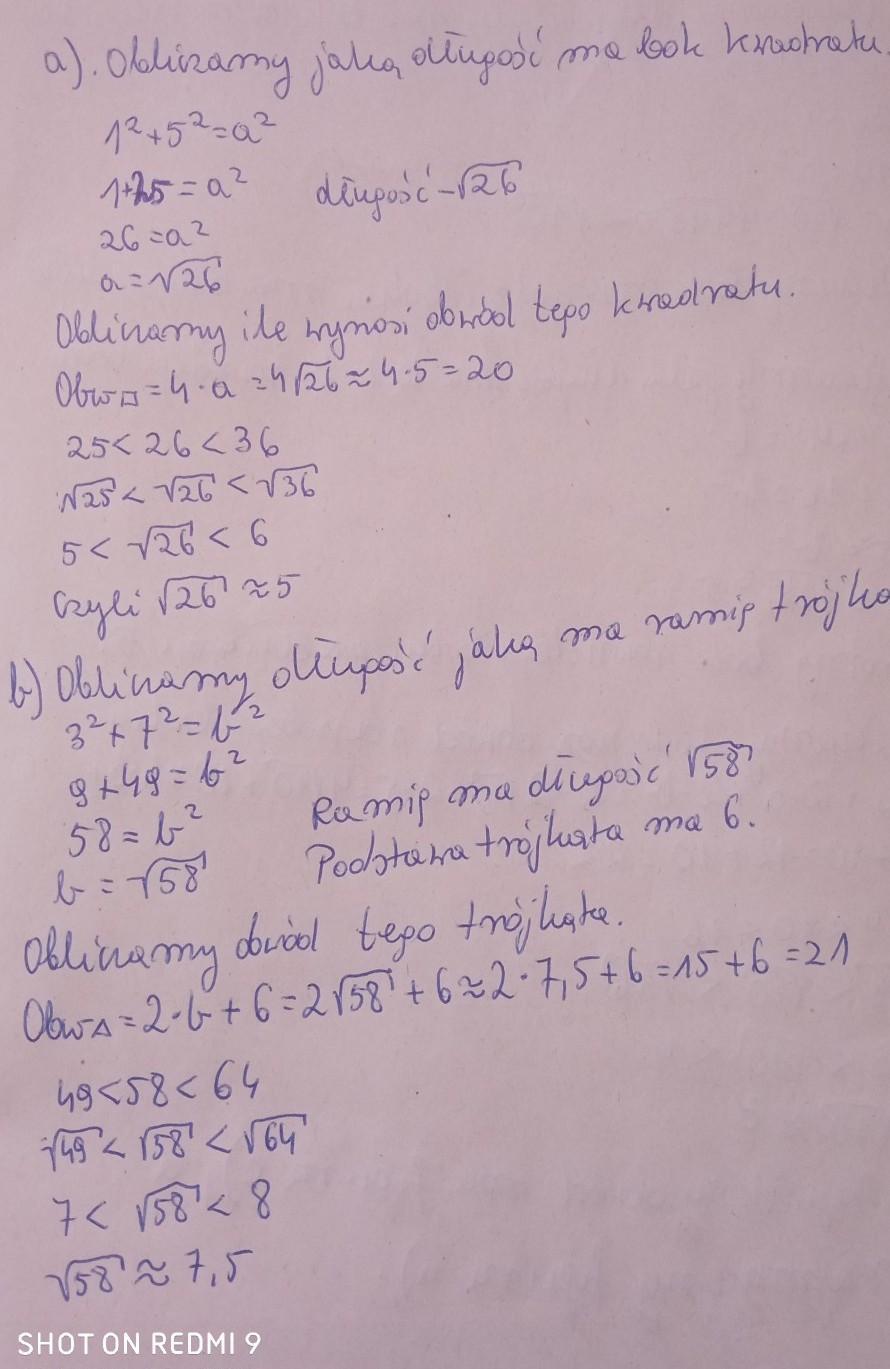 a). Obliczamy jaką długość ma bok kwadratu.
1²+5²=a²
1+25=a² długość-√26
26=a²
a=√26
Obliczamy ile wynosi obwód tego kwadratu.
Obw□=4·a=4√26≈4·5=20
25<26<36
√25<√26<√36
5<√26<6
Czyli √26≈5
b) Obliczamy długość jaką ma ramię trójką
3²+7²=b²
9+49=b²
58=b² Ramię ma długość √58
b=√58 Podstawa trójkąta ma 6.
Obliczamy obwód tego trójkąta.
Obw△=2·b+6=2√58+6≈2·7,5+6=15+6=21
49<58<64
√49<√58<√64
7<√58<8
√58≈7,5
SHOT ON REDMI 9